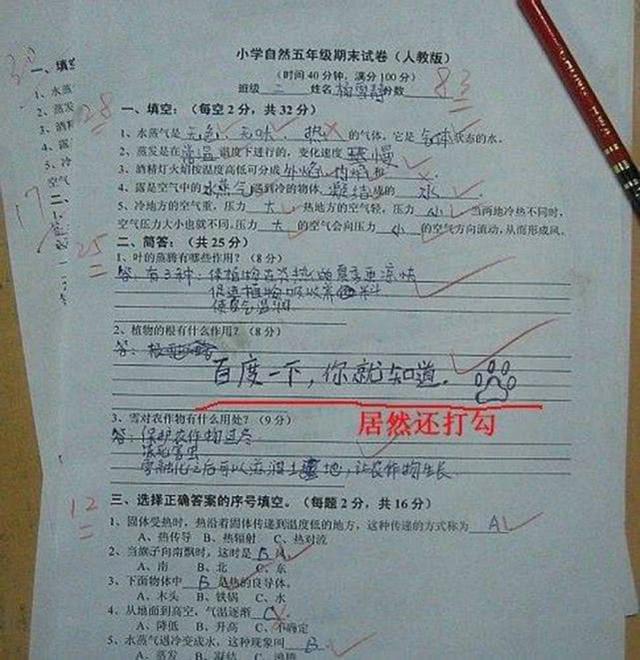 小学自然五年级期末试卷（人教版）
（时间40分钟，满分100分）
班级 二 姓名 分数 83
28
一、填空：（每空2分，共32分）
1、水蒸气是 无色 、无味 、热 的气体，它是 气体 状态的水。
2、蒸发是在 常温 温度下进行的，变化速度 慢
3、酒精灯火焰按温度高低可分成 外焰 内焰
4、露是空气中的 水蒸气 遇到冷的物体， 凝结 成的 水
5、冷地方的空气重，压力 大 热地方的空气轻，压力 小 当两地冷热不同时，
空气压力大小也就不同。压力 大 的空气会向压力 小 的空气方向流动，从而形成风。
25
二、简答：（共25分）
1、叶的蒸腾有哪些作用？（8分）
答：有三种：保植物在炎热的夏季更凉快
促进植物吸收养料
使空气湿润
2、植物的根有什么作用？（8分）
答：
百度一下，你就知道.
3、雪对农作物有什么用处？（9分）
居然还打勾
答：保护农作物过冬
冻死害虫
雪融化之后可以滋润土地，让农作物生长
12
三、选择正确答案的序号填空。（每题2分，共16分）
1、固体受热时，热沿着固体传递到温度低的地方，这种传递的方式称为 A
A、热传导 B、热辐射 C、热对流
2、当旗子向南飘时，这时是 B 风。
A、南 B、北 C、东
3、下面物体中 B 是热的良导体。
A、木头 B、铁锅 C、水
4、从地面到高空，气温逐渐 C
A、降低 B、升高 C、不确定
5、水蒸气遇冷变成水，这种现象叫 B
A、蒸发 B、凝结 C、沸腾
17
一、填空
1、水蒸
2、蒸发
3、酒精
4、露
5、冷
空气
二、